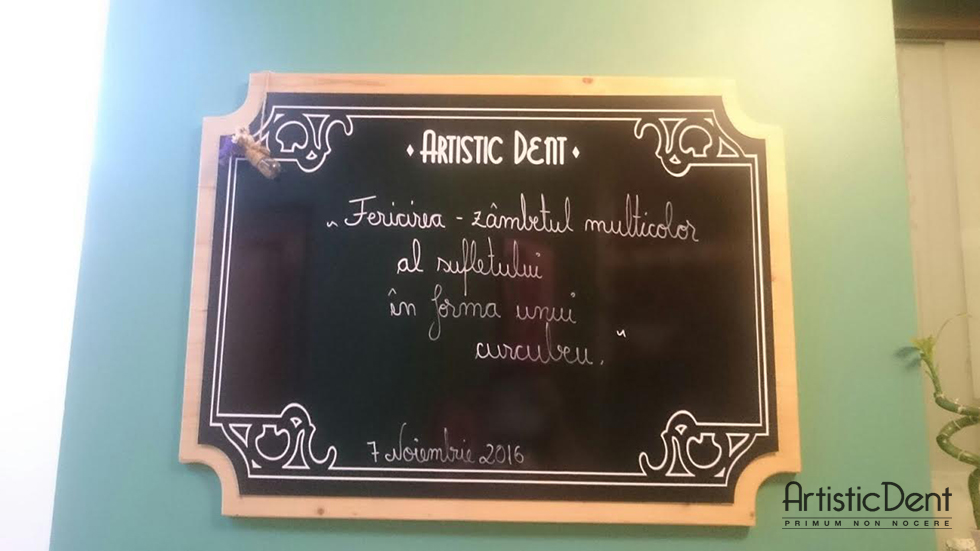 • ARTISTIC DENT •
„Fericirea - zâmbetul multicolor
al sufletului
în forma unui
curcubeu."
7 Noiembrie 2016
ArtisticDent
PRIMUM NON NOCERE